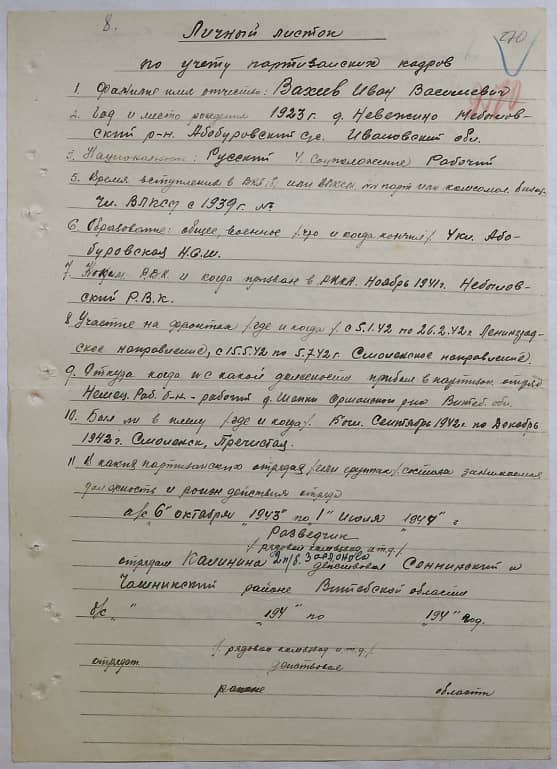 8.
270
Личный листок
по учету партизанских кадров
1. Фамилия имя отчество: Вахиев Иван Васильевич
2. Год и место рождения 1923 г. д. Невежино Небылов-
ский р-н. Абабуровский с/с. Ивановский обл.
3. Национальность: Русский 4. Соцположение Рабочий
5. Время вступления в ВКП/б/ или ВЛКСМ, № парт или комсомол. билета
Чл. ВЛКСМ с 1939 г. №
6. Образование: общее, военное /что и когда кончил/ 4 кл. Або-
буровская Н.С.Ш.
7. Каким Р.В.К. и когда призван в РККА. Ноябрь 1941 г. Небылов-
ский Р.В.К.
8. Участие на фронтах /где и когда/ с 5.1.42 по 26.2.42 г. Ленинград-
ское направление, с 15.5.42 по 5.7.42 г. Смоленское направление.
9. Откуда когда и с какой должности прибыл в партизан. отряд
Немец. Раб. б-н. - рабочий д. Оршанского р-на Витеб. обл.
10. Был ли в плену /где и когда/. Был. Сентябрь 1942 г. по Декабрь
1942 г. Смоленск, Пречистая.
11. В каких партизанских отрядах /или группах/ состоял занимаемая
должность и район действия отряда
а/с "6" октября "1943" по "1" июля "1944" г
Разведчик
/рядовой командир и т.д./
отрядам Калинина 2 п/б. Заслонова действовал Сеннинский и
Чашникский районе Витебской области
б/с " "194 " по "194 " год.
/рядовой командир и т.д./
отрядам действовал
районе области